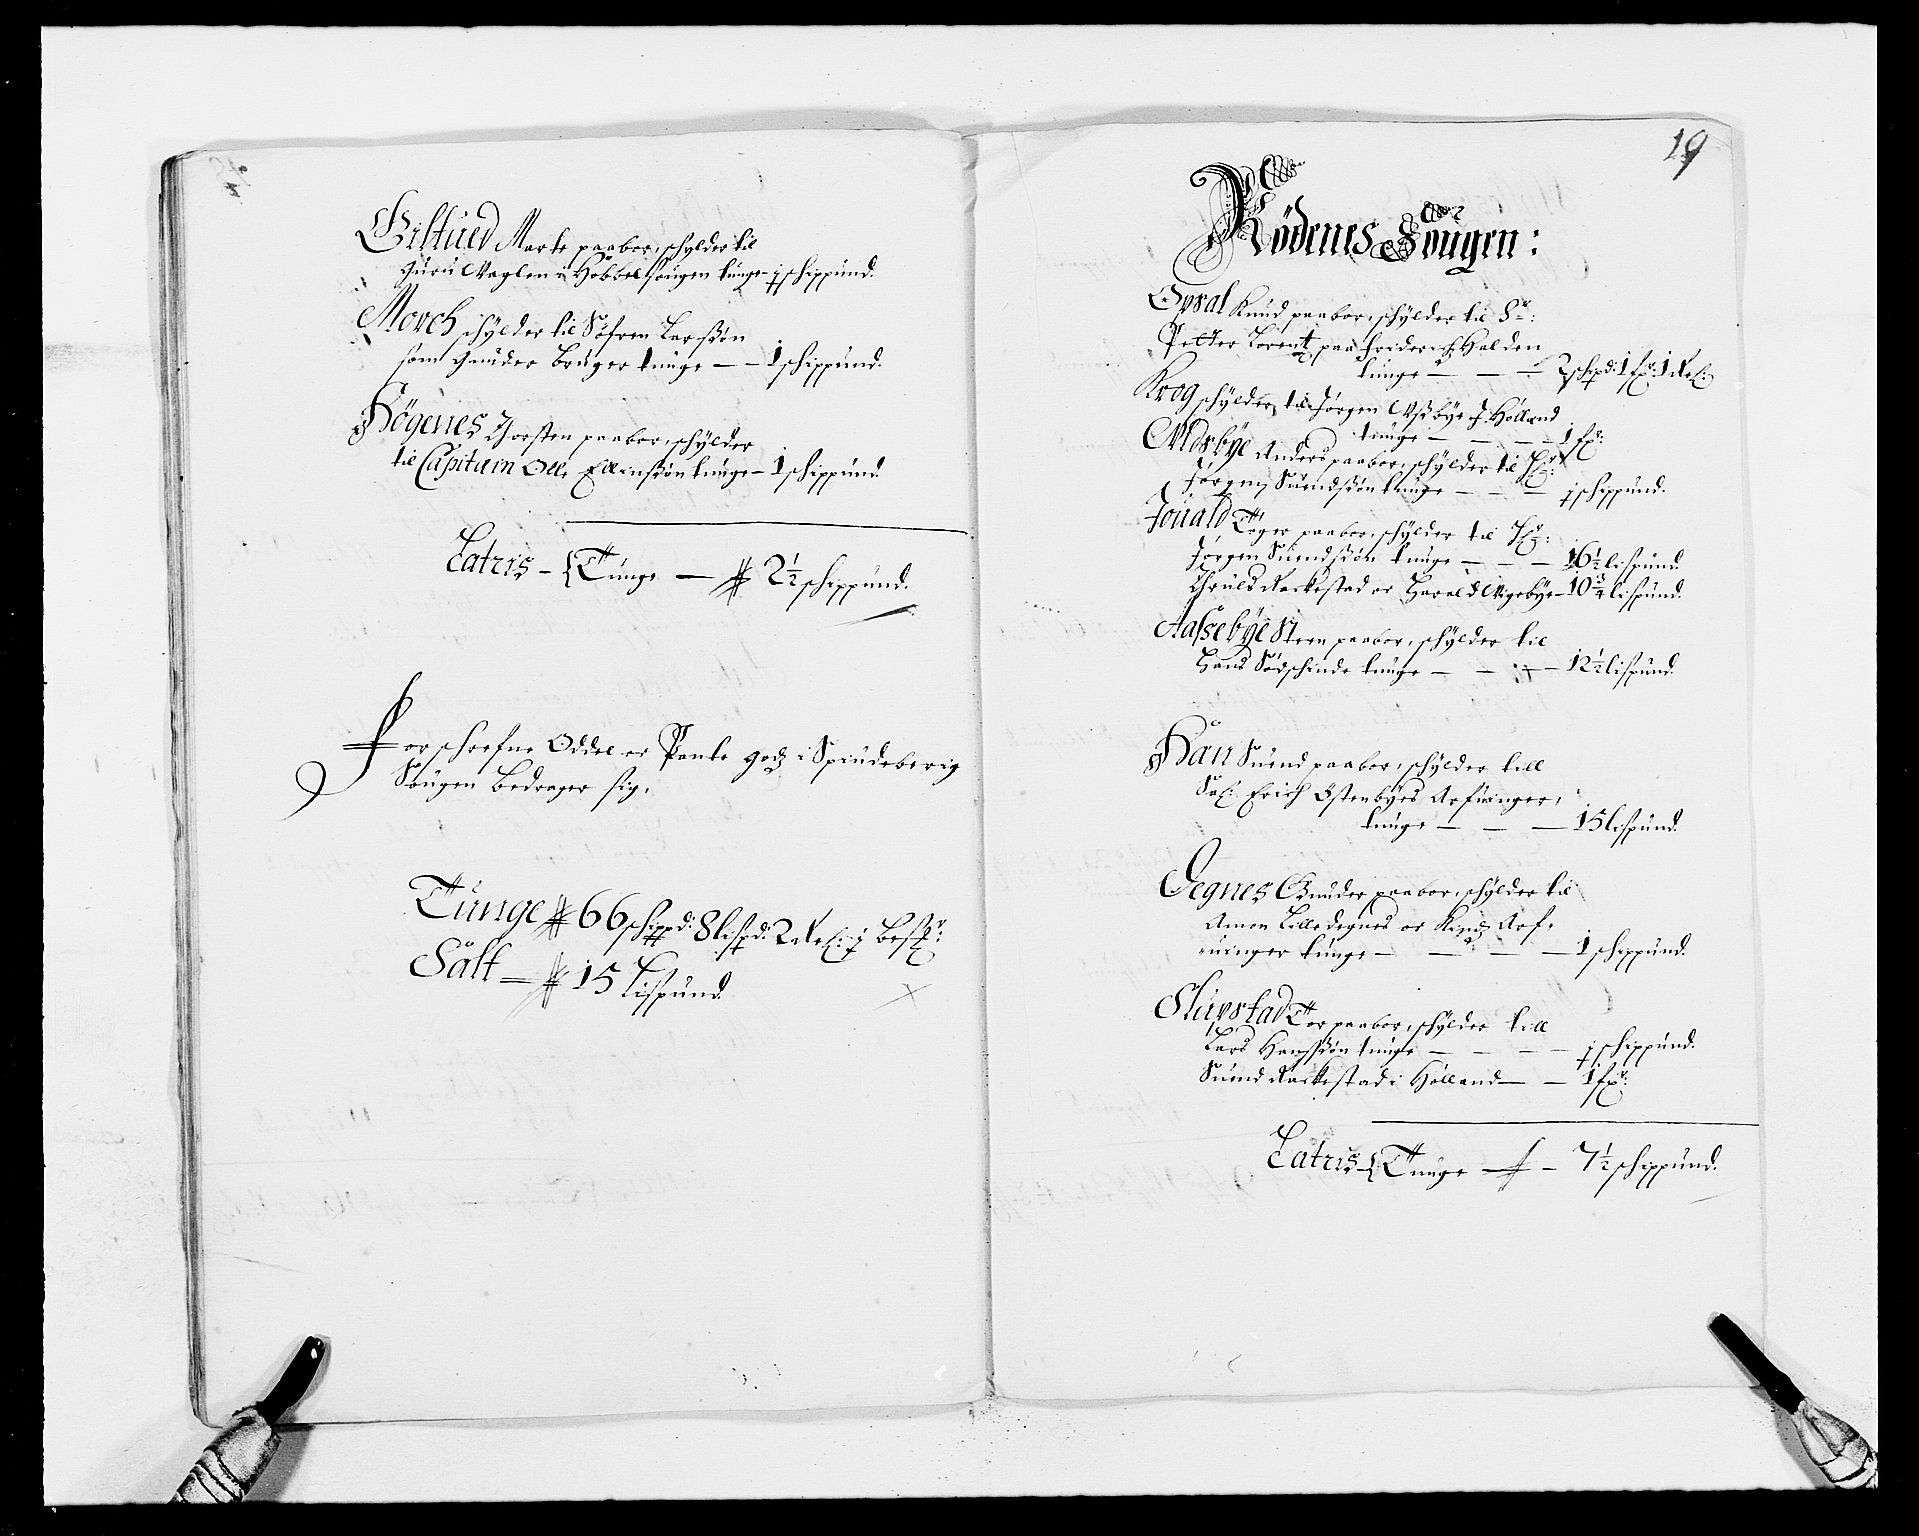 Gislued Marte paaboer, schylder til
Guru Vaglen i Hobbel sougen tunge - ½ schippund.
Morch schylder til Søfren Larssøn
som gaarder bruger tunge — 1 schippund.
Högenes Thorsten paaboer, schylder
til Capitain Olle Ellinssøn tunge - 1 schippund.
Latris - Tunge — 2½ schippund.
Forschrefne Oddel oc Pante godz i Spindeberig
Sougen bedrager sig,
Tunge 66 schippd: 8 lispd: 2 Rel: ½ Besf:
Salt — 15 Lispund
19
Rödenes Sougen:
Opsal Knud paaboer, schylder til Sr:
Petter Lorentz paa Friderichhalden
tunge — — — 2 schipd: 1 fxr: 1 Rel:
Krog schylder til Jörgen Ussbye i Hölland
tunge — — — 1 fxr:
Anders paaboer, schylder til Hr:
Jörgen Suendssøn tunge — — — ½ schippund.
Jouald Tøger paaboer, schylder til Hr:
Jörgen Suendssøn tunge — — — 16½ lispund.
Thruls Rackestad oc Harald Vigebye - 10¾ lispund.
Aassebye Sten paaboer, schylder til
Hans Sødschinde tunge — — — 12½ lispund.
Han Suend paaboer, schylder till
Sal: Erich Östenbyes Arfuinger,
tunge — — — 15 lispund.
Degnes Gunder paaboer, schylder til
Amon Lilledegnes oc Arf-
uinger tunge — — — 1 schippund.
Slupstad Tor paaboer, schylder till
Lars Hanssøn tunge — — — ½ schippund.
Suend Rackestad i Hölland — — 1 fxr:
Latris - Tunge — 7½ schippund.